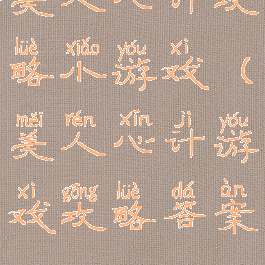 美人心计攻
lüè xiǎo yóu xì
略小游戏（
měi rén xīn jì yóu
美人心计游
xì gōng lüè dá àn
戏攻略答案